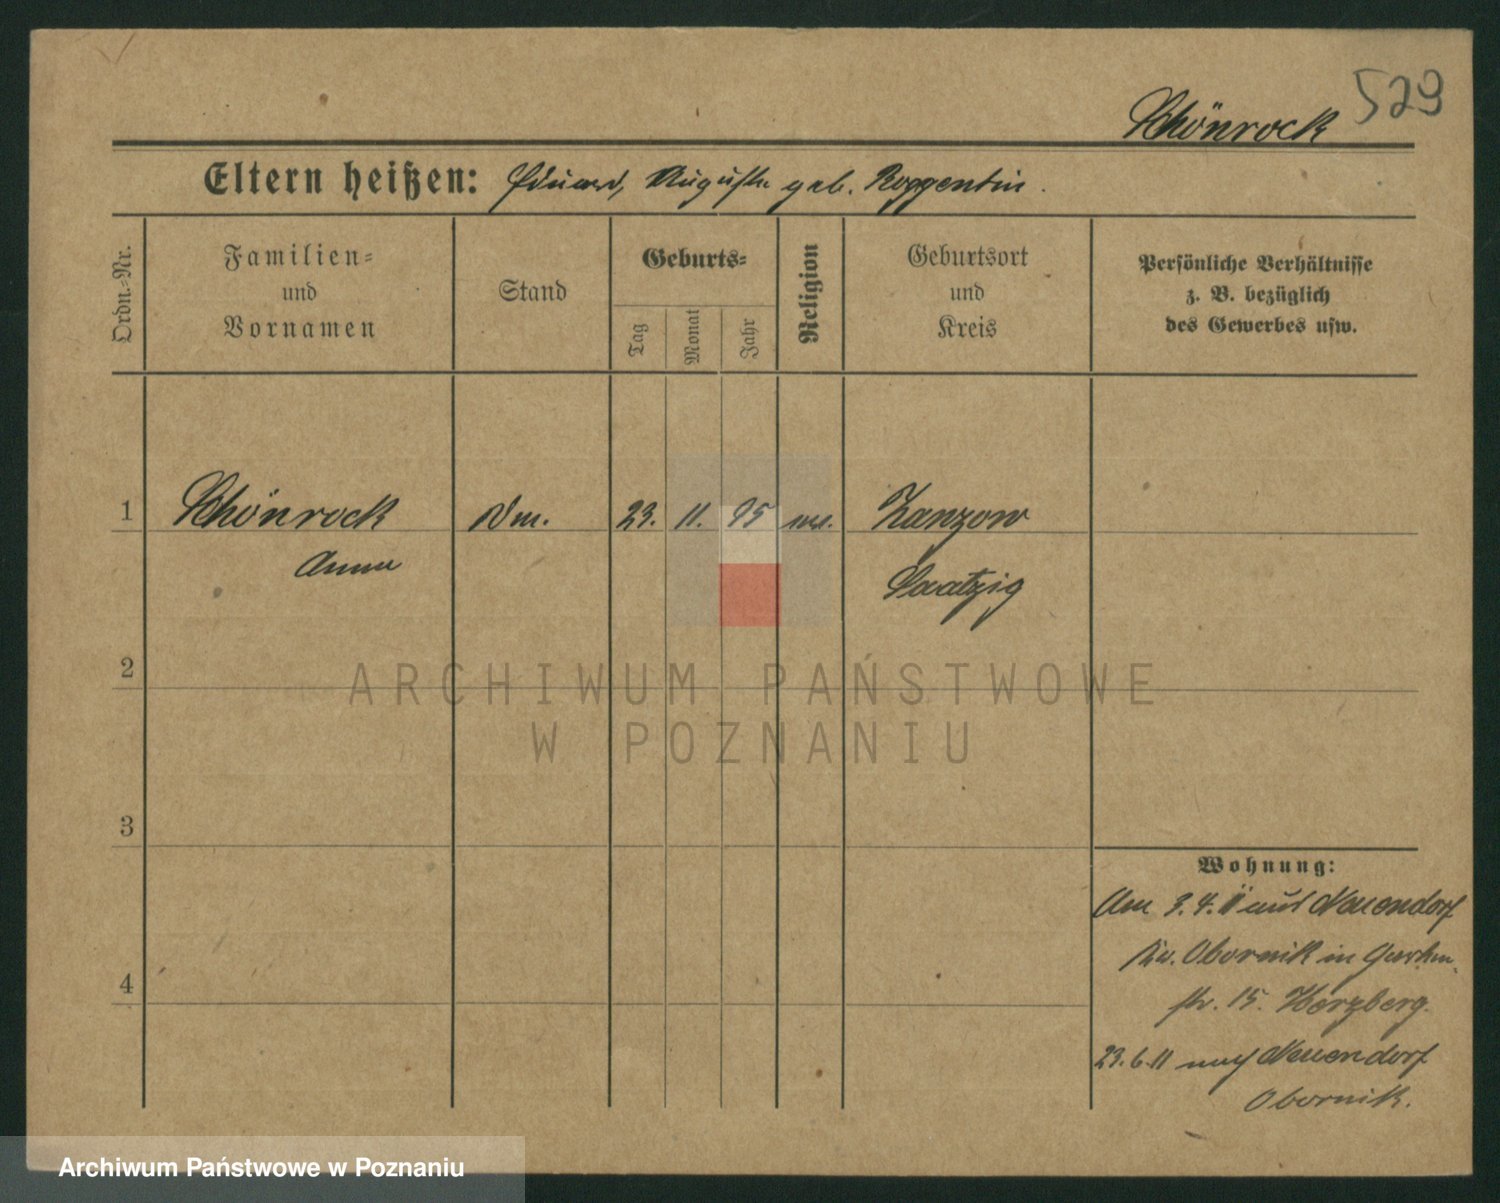 Schönrock 529
Eltern heißen: Eduard, Auguste geb. Roggentin.
Ordn.=Nr.
Familien=
und
Vornamen
Stand
Geburts=
Tag
Monat
Jahr
Religion
Geburtsort
und
Kreis
Persönliche Verhältnisse
z. B. bezüglich
des Gewerbes usw.
1 Schönrock 23. 11. 95 Zanzow
Anna Saatzig
2
3
4
Wohnung:
Am 3.4.11 aus Neuendorf
Kr. Obornik in Garten
str. 15. Herzberg.
23.6.11 nach Neuendorf
Obornik.
ARCHIWUM PAŃSTWOWE
W POZNANIU
Archiwum Państwowe w Poznaniu